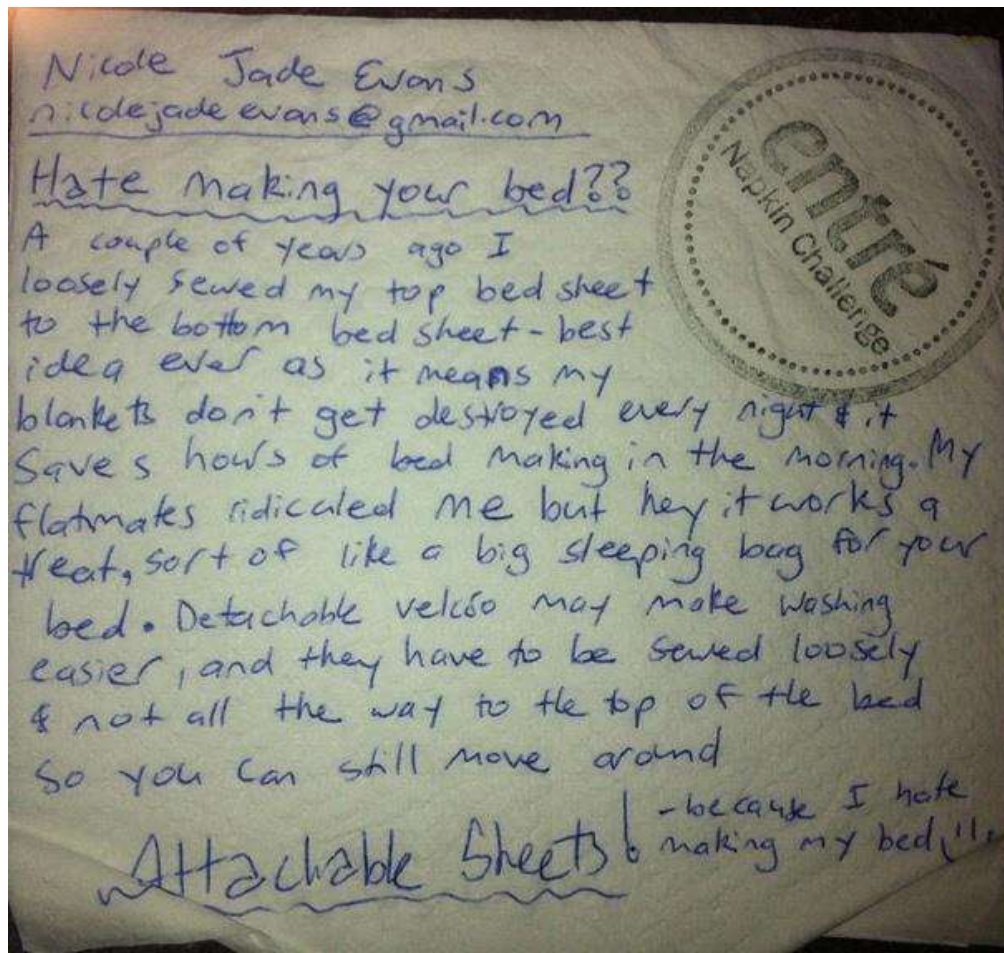 Nicole Jade Evans
nicolejadeevans@gmail.com
Hate making your bed??
A couple of years ago I
loosely sewed my top bed sheet
to the bottom bed sheet - best
idea ever as it means my
blankets don't get destroyed every night & it
saves hours of bed making in the morning. My
flatmates ridiculed me but hey it works a
treat, sort of like a big sleeping bag for your
bed. Detachable velcro may make washing
easier, and they have to be sewed loosely
& not all the way to the top of the bed
so you can still move around
Attachable Sheets!
- because I hate
making my bed!!!
entré
Napkin Challenge